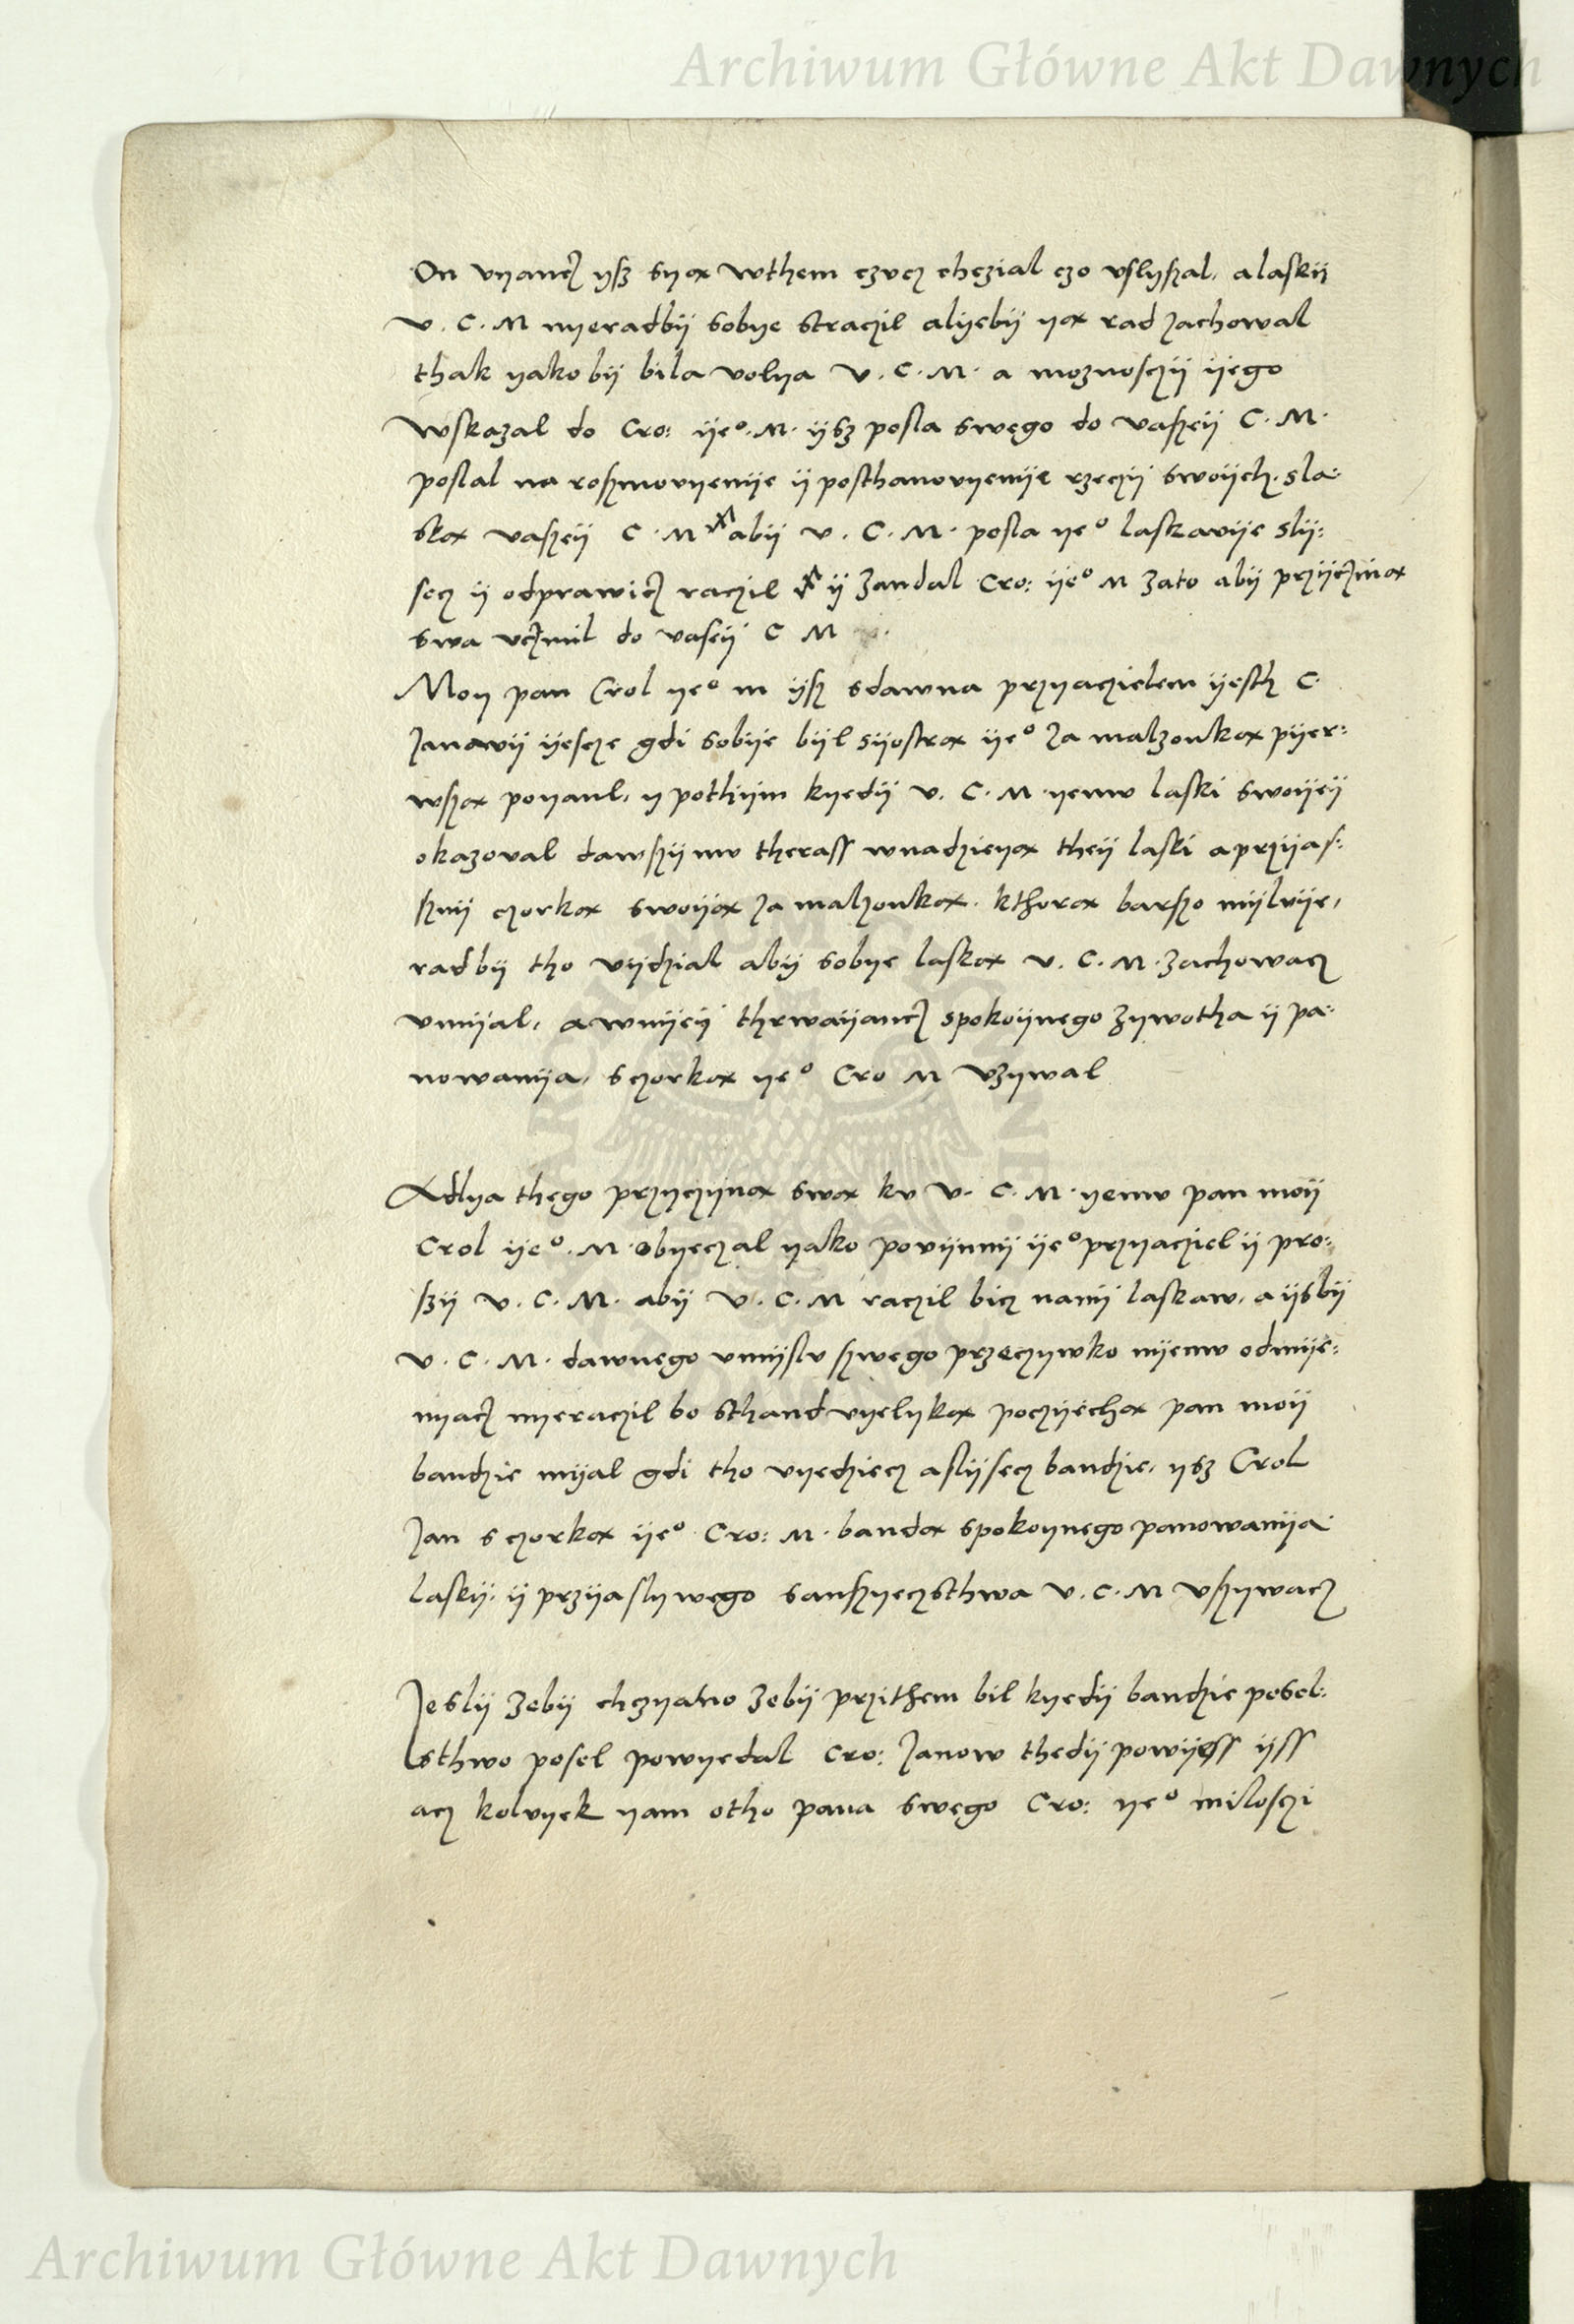 Archiwum Główne Akt Dawnych
On vyancz ysz syą wthem czvcz chczial czo vslyszal, a laskij
v. C. M nyeradbij sobye straczil alyebij yą rad zachowal
thak yako bij bila volya v. C. M. a moznosczij ijego
Wskazal do Cro: ije⁰. M. ijsz posla swego do vaszeij C. M.
poslal na roszmovyenije ij posthanovyenije rzeczij swoijch. sla:
ską vaszeij C. M abij v. C. M. posla ye⁰ laskavije slij:
secz ij odprawicz raczil ij zandal Cro: ije⁰ M zato abij przijcziną
swa vczinil do vaseij C M
Moy pan Crol ye⁰ m ijsz sdawna przyaczielem ijesth C.
Janawij ijescze gdi sobije bijl sijostrą ije⁰ za malzonką pijer:
wszą poyanl, y pothijm kyedij v. C. M. yemv laski swoijeij
okazoval dawszij mv therass wnadzieyą theij laski a przijas:
sznij czorką swoiją za malzonką. kthorą barszo mijlvije,
radbij tho vijdzial abij sobye laską v. C. M. zachowacz
vmijal, a wnijeij thrwaijancz spokoijnego zywotha ij pa:
nowanija, s czorką ye⁰ Cro M vzywal
Adlya thego przyczijną swą kv v. C. M. yemv pan moij
Crol ije⁰. M. obyeczal yako povijnnij ije⁰ przyacziel ij pro:
szij v. C. M. abij v. C. M raczil bicz nanij laskaw, a ijsbij
v. C. M. dawnego vmijslv szwego przeczywko nijemv odmije:
nyacz nyeraczil bo sthand vyelyką poczijechą pan moij
bandzie mijal gdi tho vyedziecz a slijsecz bandzie, ysz Crol
Jan s czorką ije⁰ Cro: M. bandą spokoynego panowanija
laskij. ij przijaslywego sanszyeczsthwa v. C. M vszywacz
Jeslij zebij chczyano zebij przithem bil kyedij bandzie posel:
sthwo posel powyedal Cro: Janow thedij powijess ijss
acz kolvyek yam otho pana swego Cro: ye⁰ milosczi
Archiwum Główne Akt Dawnych